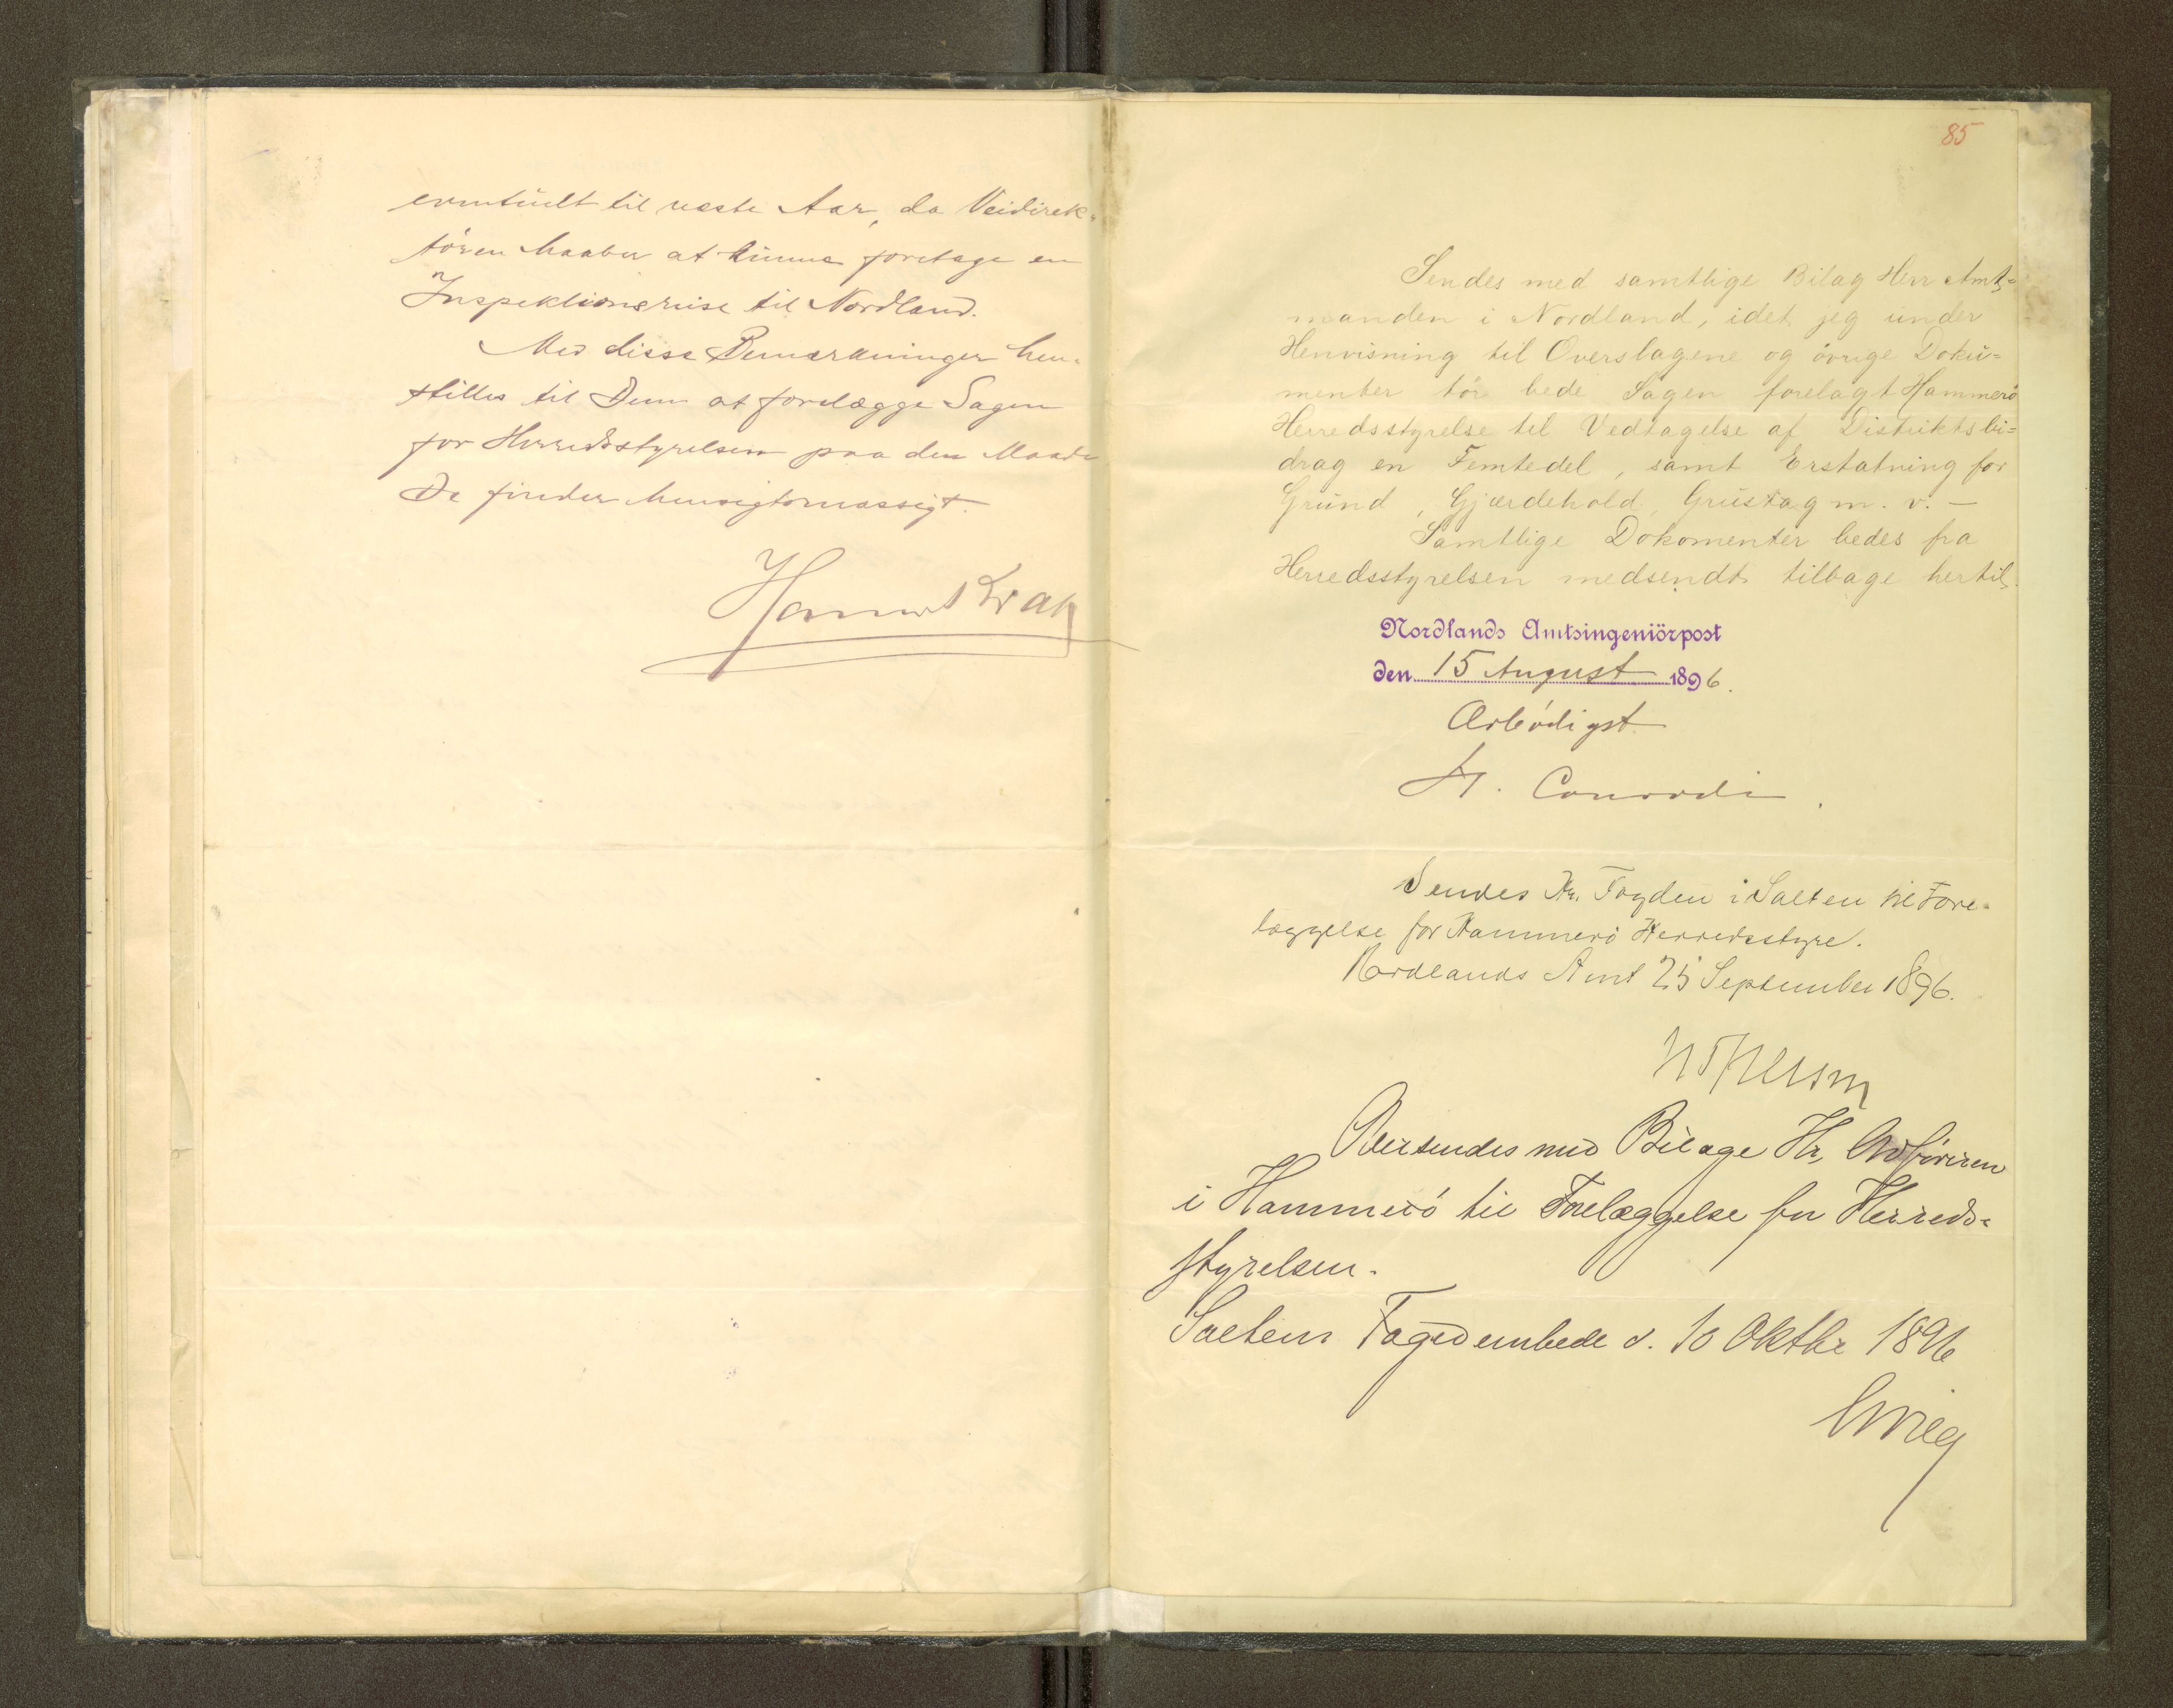 eventuelt til næste Aar, da Veidirek-
tören haaber at kunne foretage en
Inspektionsreise til Nordland.
Med disse Bemærkninger hen-
stilles til Dem at forelægge Sagen
for Herredsstyrelsen paa den Maade
De finder hensigtsmæssigt.
Hans Krag
85
Sendes med samtlige Bilag Herr Amt-
manden i Nordland, idet jeg under
Henvisning til Overslagene og övrige Doku=
menter tör bede Sagen forelagt Hammerö
Herredsstyrelse til Vedtagelse af Distriktsbi=
drag en Femtedel, samt Erstatning for
Grund, Gjærdehold, Grustag m. v. —
Samtlige Dokomenter bedes fra
Herredsstyrelsen medsendt tilbage hertil.
Nordlands Amtsingeniörpost
den 15 August 1896.
Ærbödigst
H. Conradi.
Sendes Hr. Fogden i Salten til Fore-
læggelse for Hammerö Herredsstyre.
Nordlands Amt 25 September 1896.
Oversendes med Bilage Hr. Ordföreren
i Hammerö til Forelæggelse for Herreds-
styrelsen.
Saltens Fogedembede d. 10 Oktbr 1896